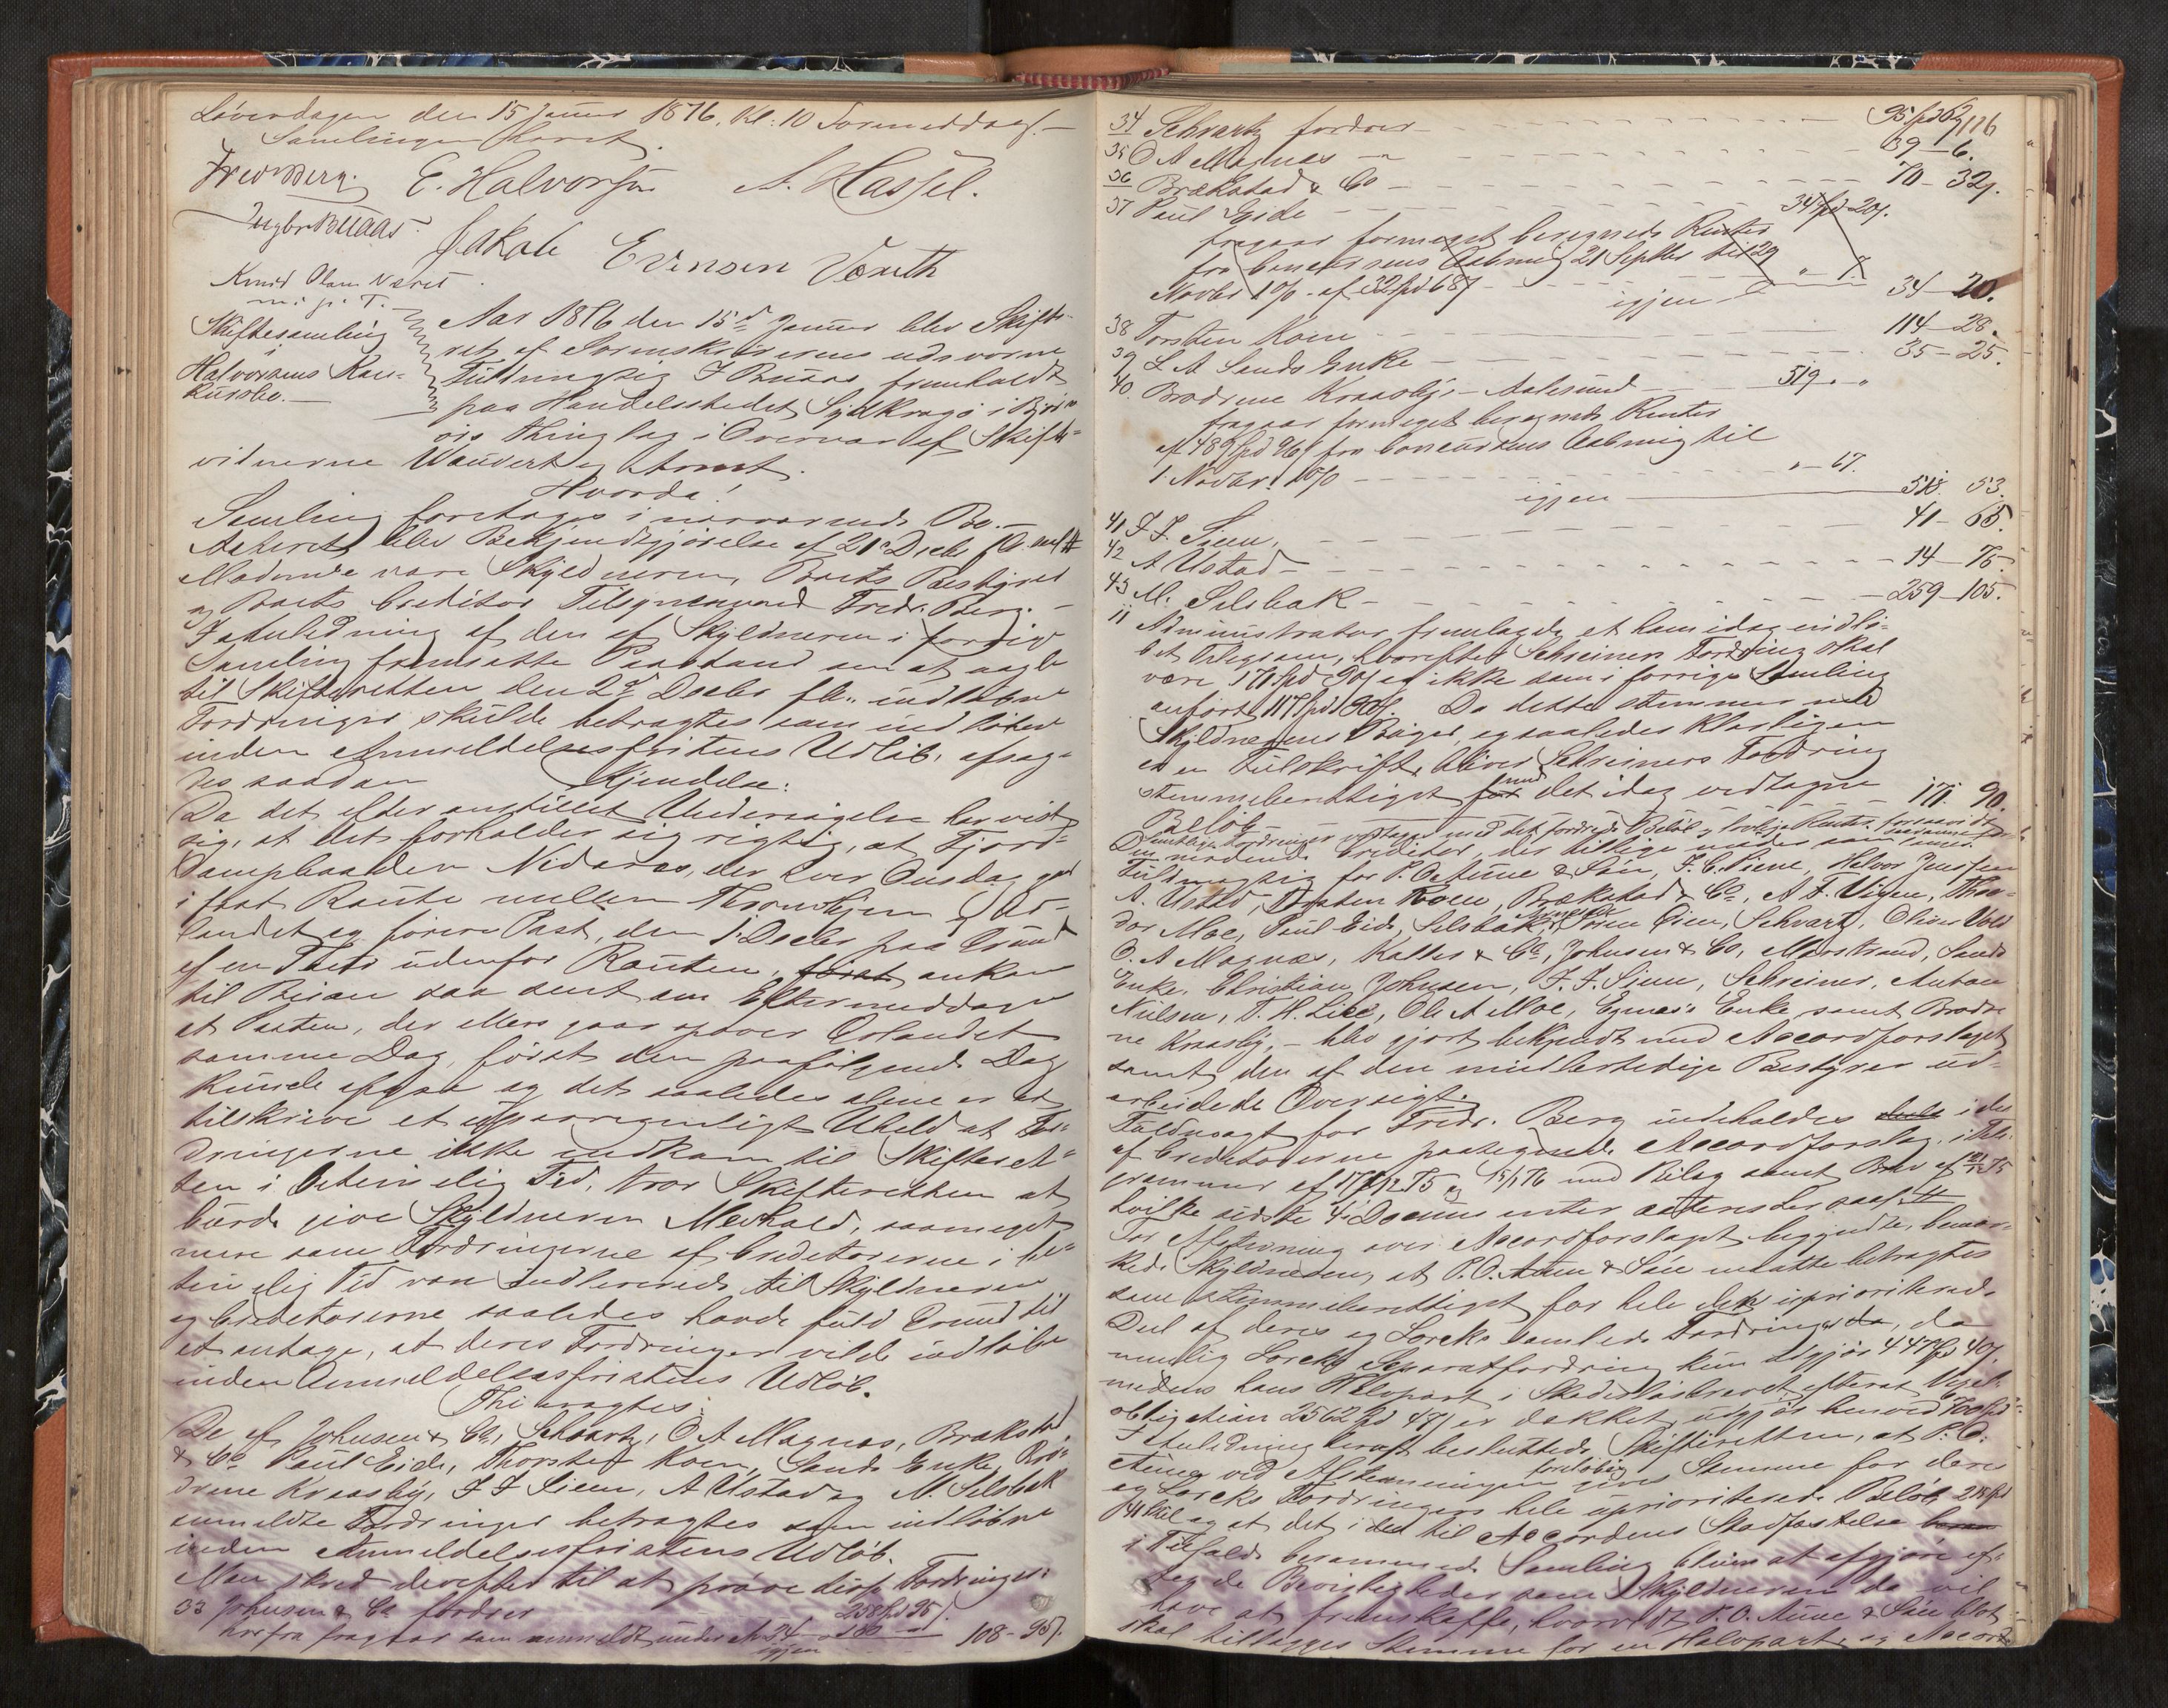 Løverdagen den 15 Januar 1876. Kl: 10 Formiddag.
Samlingen hævet.
Fred Berg. E. Halvorsen A. Hassel.
Jakob Evensen Vareth
Knud Olsen Næret
m. p. P.
Skiftesamling
i
Halvorsens Kon-
kursbo.
Aar 1876 den 15de Januar blev Skifte-
ret af Sorenskriverens edsvorne
Fuldmægtig I Buaas fremholdt
paa Handelsstedet Sydkragø i Bjør-
ørs Thinglag i Overvær af Skifte-
vidnerne
Hvorda!
Samling foretages i nærværende Bo.
Akteret blev Bekjendtgjørelse af 21 Decbr f. A.
Mødende vare Skyldneren, Boets Bestyrer
og Boets Creditor Tilsynsmand Fredr. Berg.
I Anledning af den af Skyldneren i forrige
Samling fremsatte Paastand om at
til Skifteretten den 2den Decbr f. A. indløbne
Fordringer skulde betragtes som indløbne
inden Anmeldelsesfristens Udløb, afsag-
des saadan Kjendelse:
Da det efter anstillet Undersøgelse har vist
sig, at det forholder sig rigtig, at Fjord-
dampbaaden Nidaros, der hver Onsdag gaar
i fast Route mellem Thronhjem og Ør-
landet og fører Post, den 1 Decbr paa Grund
af en Tour udenfor Routen, først ankom
til Beian saa sent om Eftermiddagen
at Posten, der ellers gaar opover Ørlandet
samme Dag, først den paafølgende Dag
kunde afgaa og det saaledes alene er at
tilskrive et Uheld at For-
dringerne ikke indkom til Skifteret-
ten i betimelig Tid, tror Skifteretten at
burde give Skyldneren Medhold, saameget
mere som Fordringerne af Creditorerne i be-
timelig Tid vare indleverede til Skyldneren
og Creditorerne saaledes havde fuld Grund til
at antage, at deres Fordringer vilde indløbe
inden Anmeldelsesfristens Udløb.
Thi eragtes:
De af Johnsen & Co, Schvartz, O A Magnas, Brækstad
& Co Paul Eide, Thorsten Koen, Sands Enke, Brø-
drene Kraasby, J J Siem, A Ustad og M. Selsbak
anmeldte Fordringer betragtes som indløbne
inden Anmeldelsesfristens Udløb.
Man skred derefter til at prøve disse Fordringer:
33 Johnsen & Co fordrer 258 spd 95
herfra fragaar som anmeldt under No 24 150
igjen 108 - 95
116
34 Schvartz fordrer 95 spd 62
35 O A Magnas 39 - 6.
36 Brækstad & Co 70 - 32
37 Paul Eide 34 spd 20
fragaar formeget beregnede Renter
fra Concursens Aabning 21 Septbr til 29
Novbr
igjen 34 - 20.
38 Torsten Koen 114 - 28.
39 L A Sands Enke 35 - 25.
40. Brødrene Kraasby - Aalesund 519 - "
fragaar formeget beregnede Renter
af 489 spd 96 fra Concursens Aabning til
1. Novbr. " - 67.
igjen 518. 53.
41 J. J. Siem. 41 - 65.
42 A Ustad 14 - 76.
43 M. Selsbak 259 - 105.
11 Administrator fremlagde et ham idag indlø-
bet Telegram, hvorefter Schreiners Fordring skal
være 171 spd 90 og ikke som i forrige Samling
anført 117 spd 90. Da dette stemmer med
Skyldnerens Bøger, og saaledes klarligen
er en Feilskrift, bliver Schreiners Fordring
stemmeberettiget med det idag vedtagne
Beløb 171. 90.
mødende Creditor, der tillige mødte som
Fuldmægtig for P. O Aune & Søn, F. C. Piene, Halvor Jenssen
A. Ustad, Torsten Koen, Brækstad & Co, A. F. Vigen, Thor-
dor Moe, Paul Eide, Selsbak, Sören Oien, Schvartz, Oliver Vold
O. A Magnas, Kattes & Co, Johnsen & Co, Mørstrand, Sands
Enke, Christian Johnsen, J. J. Siem, Schreiner, Anton
Nielsen, T. H. Lied, Ole A Moe, Enke, samt Brødre-
ne Kraasby, - blev gjort bekjendt med Accordforslaget
samt den af den midlertidige Bestyrer ud-
arbeidede Oversigt.
Fuldmagt for Fredr. Berg indeholdes i det
af Creditorerne paategnede Accordforslag, i Tele-
grammer af 17/12 75 og 15/1 76 med Bilag samt Brev af
hvilke sidste 4 Documenter akteredes saal.
Før Afstemning over Accordforslaget begyndte, bemær-
kede Skyldneren, at P. O. Aune & Søn maatte betragtes
som stemmeberettiget for hele den uprioriterede
Deel af deres og Lorcks samlede Fordringer, da
nemlig Lorcks Separatfordring kun udgjør 447 spd 40
medens hans Halvpart i Skadesløsbrevet efterat
obligation 2562 spd 48 er dækket, udgjør henved 700 spd
I Anledning heraf besluttede Skifteretten, at P. O.
Aune ved Afstemningen foreløbig gives Stemme for deres
og Lorcks Fordringers hele uprioriterede Beløb
og at det i den til Accordens Stadfæstelse
i Tilfælde berammende Samling bliver at afgjøre ef-
ter de Bevisligheder som Skyldneren da vil
have at fremskaffe, hvorvidt P. O. Aune & Søn blot
skal tillægges Stemme for en Halvpart, og Accord